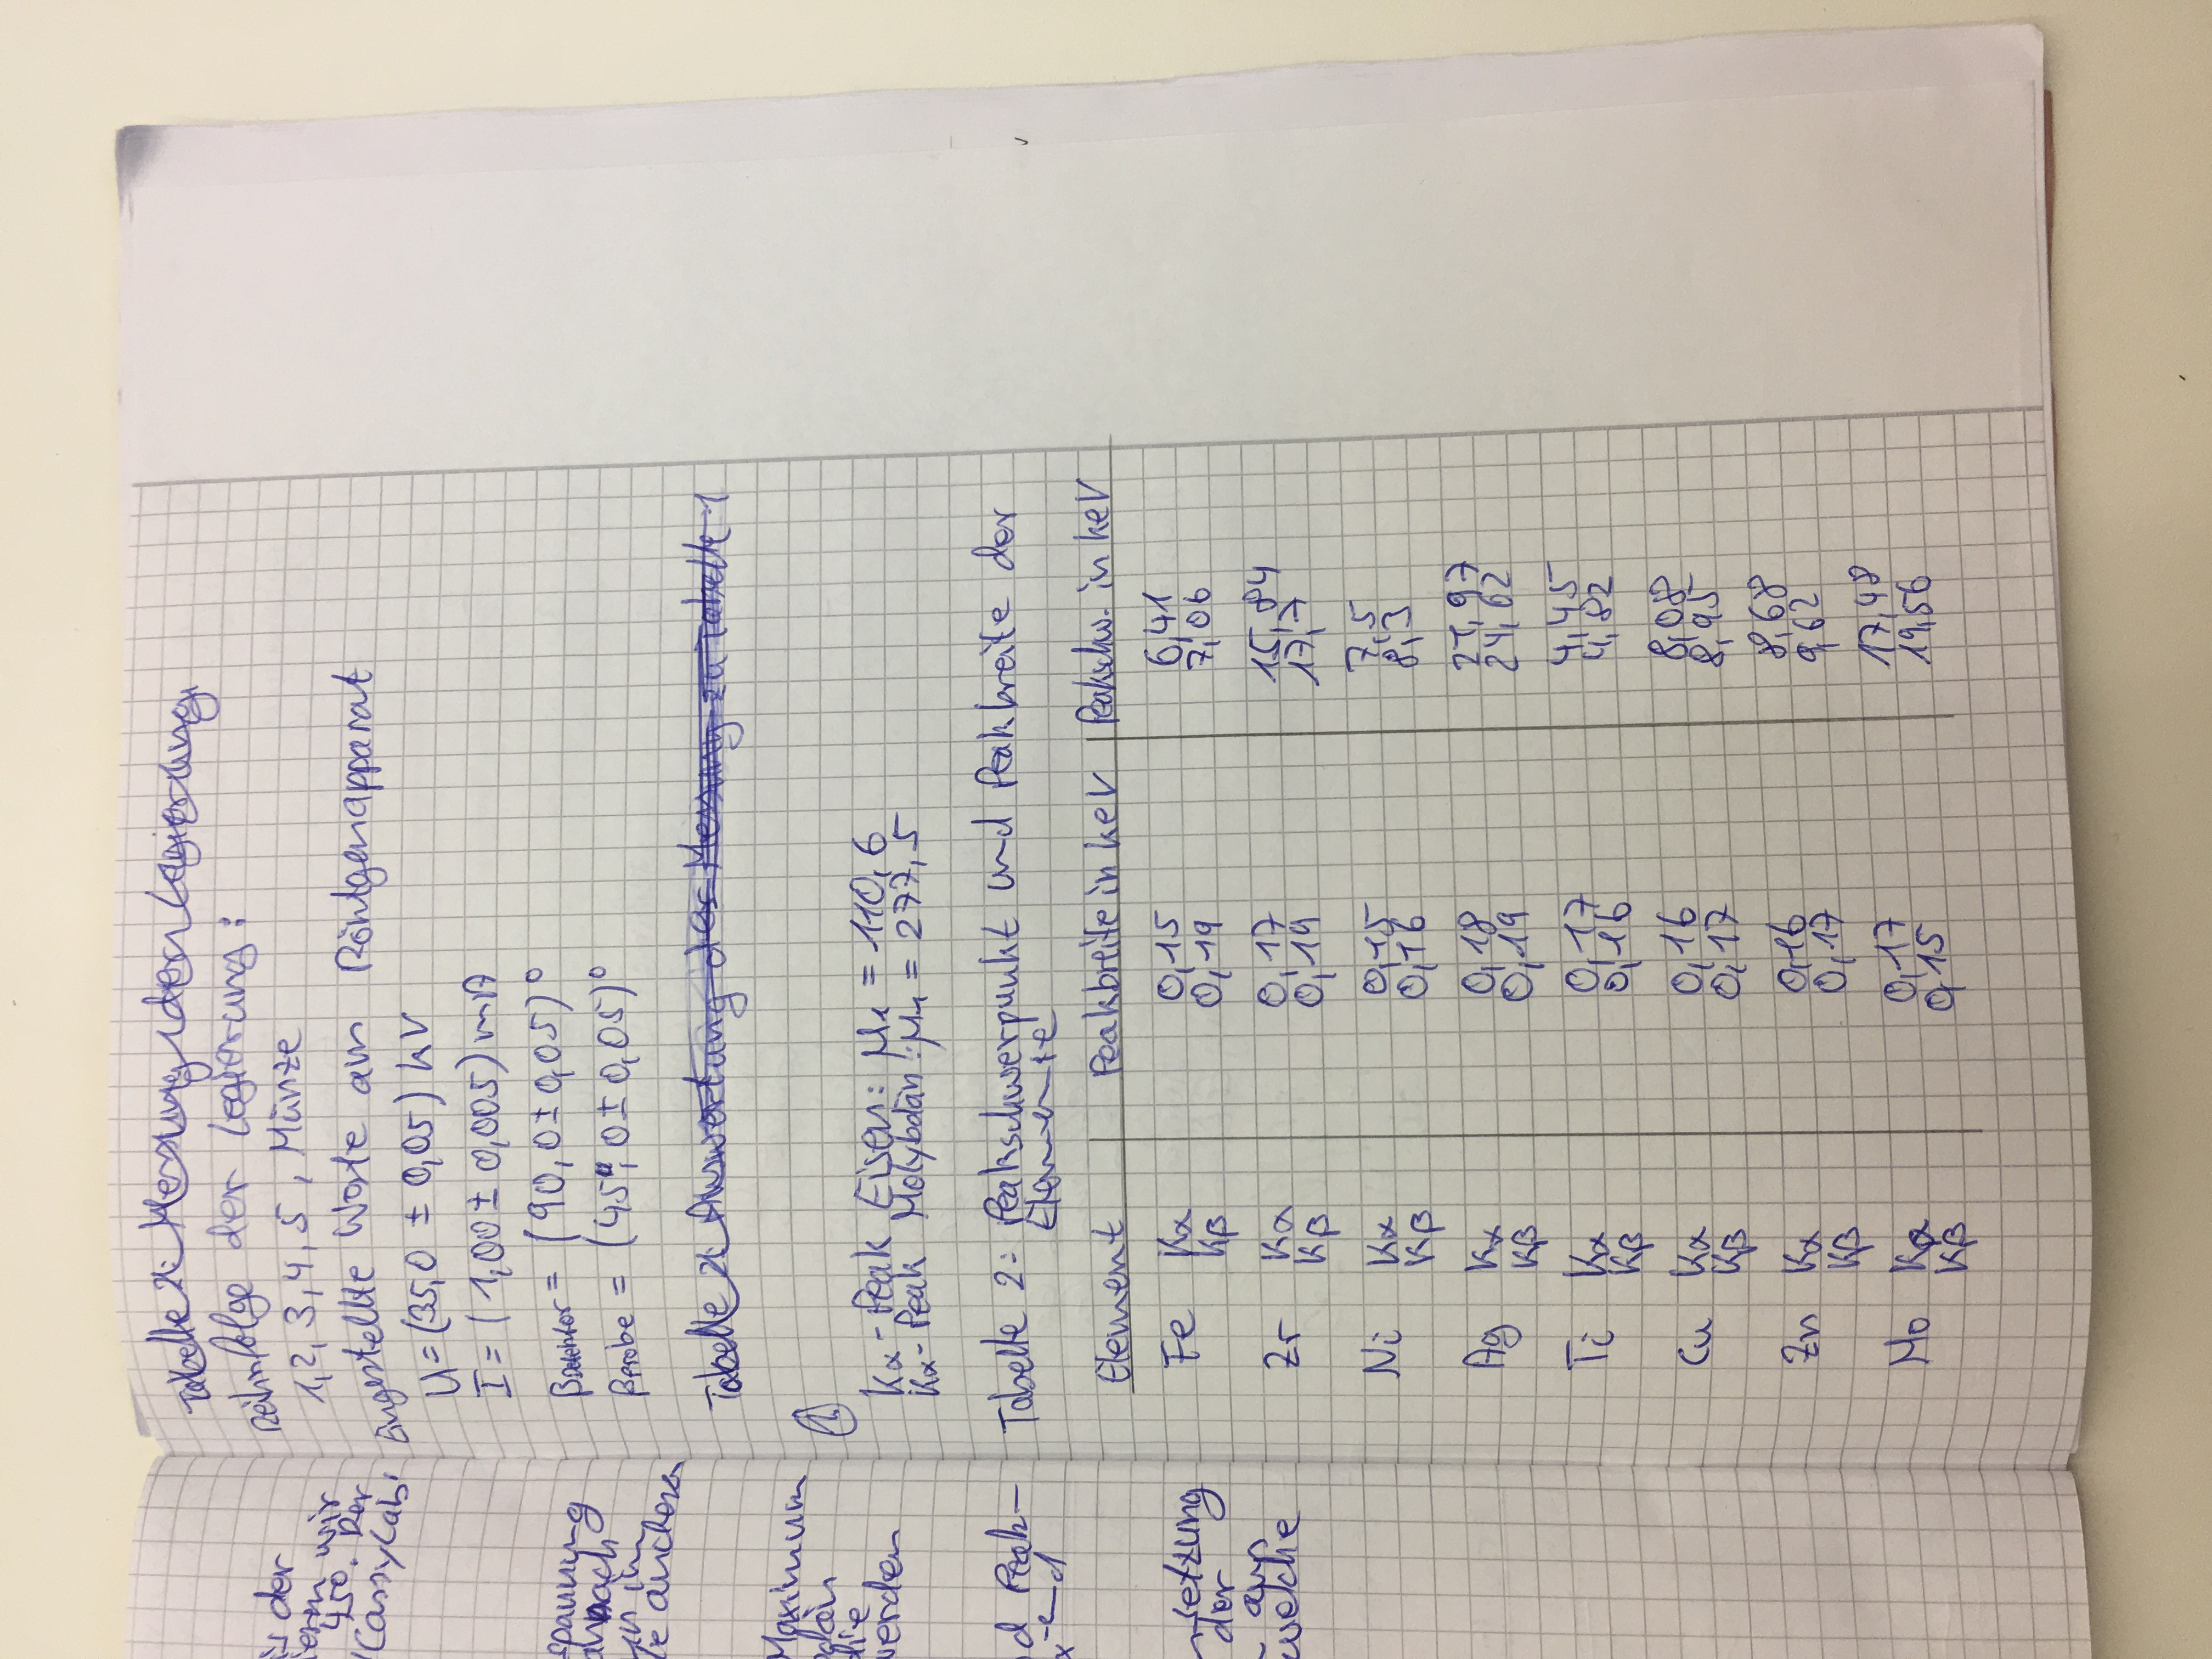 is der
ieren wir
450. Der
'CassyLab'
spannung
danach
un im
te anderen
Maximum
bdän
die
werden
d Peak-
x-end
nsetzung
der
aus
welche
Tabelle 2: Messung der Legierung
Reihnfolge der Legierung:
1, 2, 3, 4, 5, Münze
Eingestellte Werte am Röntgenapparat
U = (35,0 ± 0,05) kV
I = (1,00 ± 0,005) mA
βDetektor = (90,0 ± 0,05)°
βProbe = (45,0 ± 0,05)°
Tabelle 2: Auswertung der Messung zu Tabelle 1
1.
Kα-Peak Eisen: μ1 = 110,6
Kα-Peak Molybdän: μ1 = 277,5
Tabelle 2: Peakschwerpunkt und Peakbreite der
Elemente
Element Peakbreite in keV Peakschw. in keV
Fe Kα 0,15 6,41
Kβ 0,19 7,06
Zr Kα 0,17 15,84
Kβ 0,19 17,7
Ni Kα 0,15 7,5
Kβ 0,16 8,3
Ag Kα 0,18 21,97
Kβ 0,19 24,62
Ti Kα 0,17 4,45
Kβ 0,16 4,82
Cu Kα 0,16 8,08
Kβ 0,17 8,95
Zn Kα 0,16 8,68
Kβ 0,17 9,62
Mo Kα 0,17 17,48
Kβ 0,15 19,56